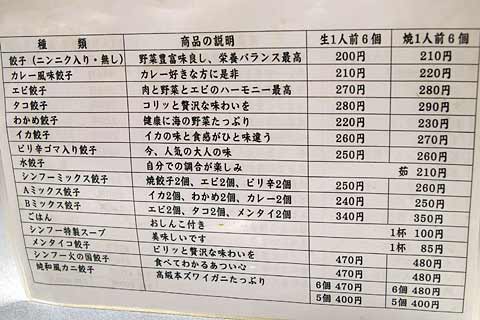 種類 商品の説明 生1人前6個 焼1人前6個
餃子(ニンニク入り・無し) 野菜豊富味良し、栄養バランス最高 200円 210円
カレー風味餃子 カレー好きな方に是非 210円 220円
エビ餃子 肉と野菜とエビのハーモニー最高 270円 280円
タコ餃子 コリッと贅沢な味わいを 280円 290円
わかめ餃子 健康に海の野菜たっぷり 220円 230円
イカ餃子 イカの味と食感がひと味違う 260円 270円
ピリ辛ゴマ入り餃子 今、人気の大人の味 250円 260円
水餃子 自分での調合が楽しみ 茹 210円
シンフーミックス餃子 焼餃子2個、エビ2個、ピリ辛2個 250円 260円
Aミックス餃子 イカ2個、わかめ2個、カレー2個 240円 250円
Bミックス餃子 エビ2個、タコ2個、メンタイ2個 340円 350円
ごはん おしんこ付き 1杯 100円
シンフー特製スープ 美味しいです 1杯 85円
メンタイコ餃子 ピリッと贅沢な味わいを 470円 480円
シンフー火の国餃子 食べてわかるあつい心 470円 480円
純和風カニ餃子 高級本ズワイガニたっぷり 6個 470円 6個 480円
5個 400円 5個 400円